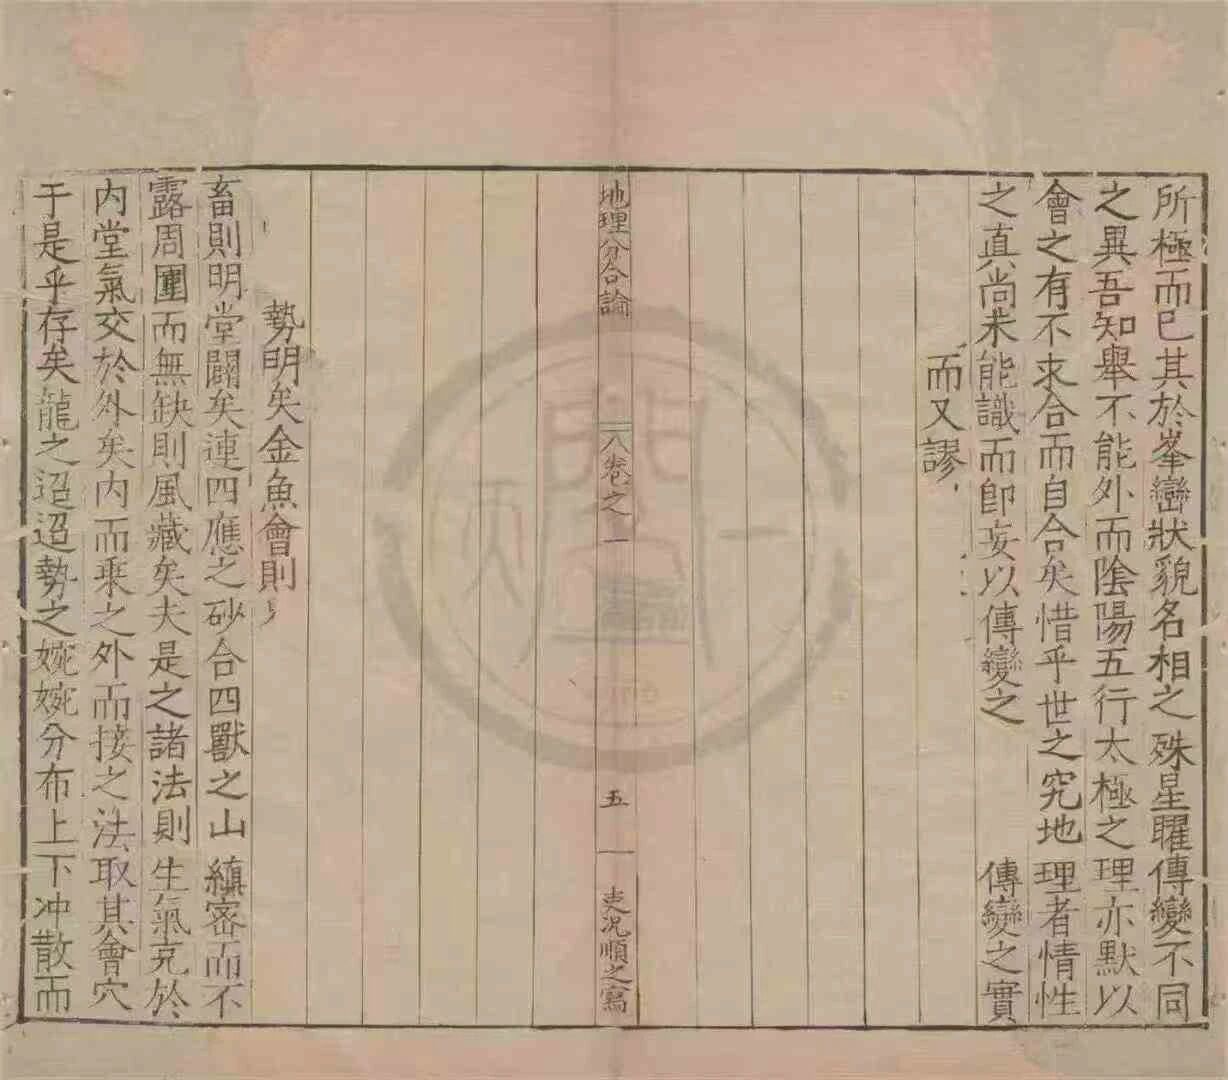 所極而已其於峯巒狀貌名相之殊星曜傳變不同
之異吾知舉不能外而陰陽五行太極之理亦默以
會之有不求合而自合矣惜乎世之究地理者情性
之真尚未能識而卽妄以傳變之 傳變之實
而又謬
地理分合論 八卷之一 五 吏況順之寫
勢明矣金魚會則
畜則明堂闢矣連四應之砂合四獸之山縝密而不
露周圍而無缺則風藏矣夫是之諸法則生氣充於
內堂氣交於外矣內而乘之外而接之法取其會穴
于是乎存矣龍之迢迢勢之婉婉分布上下冲散而